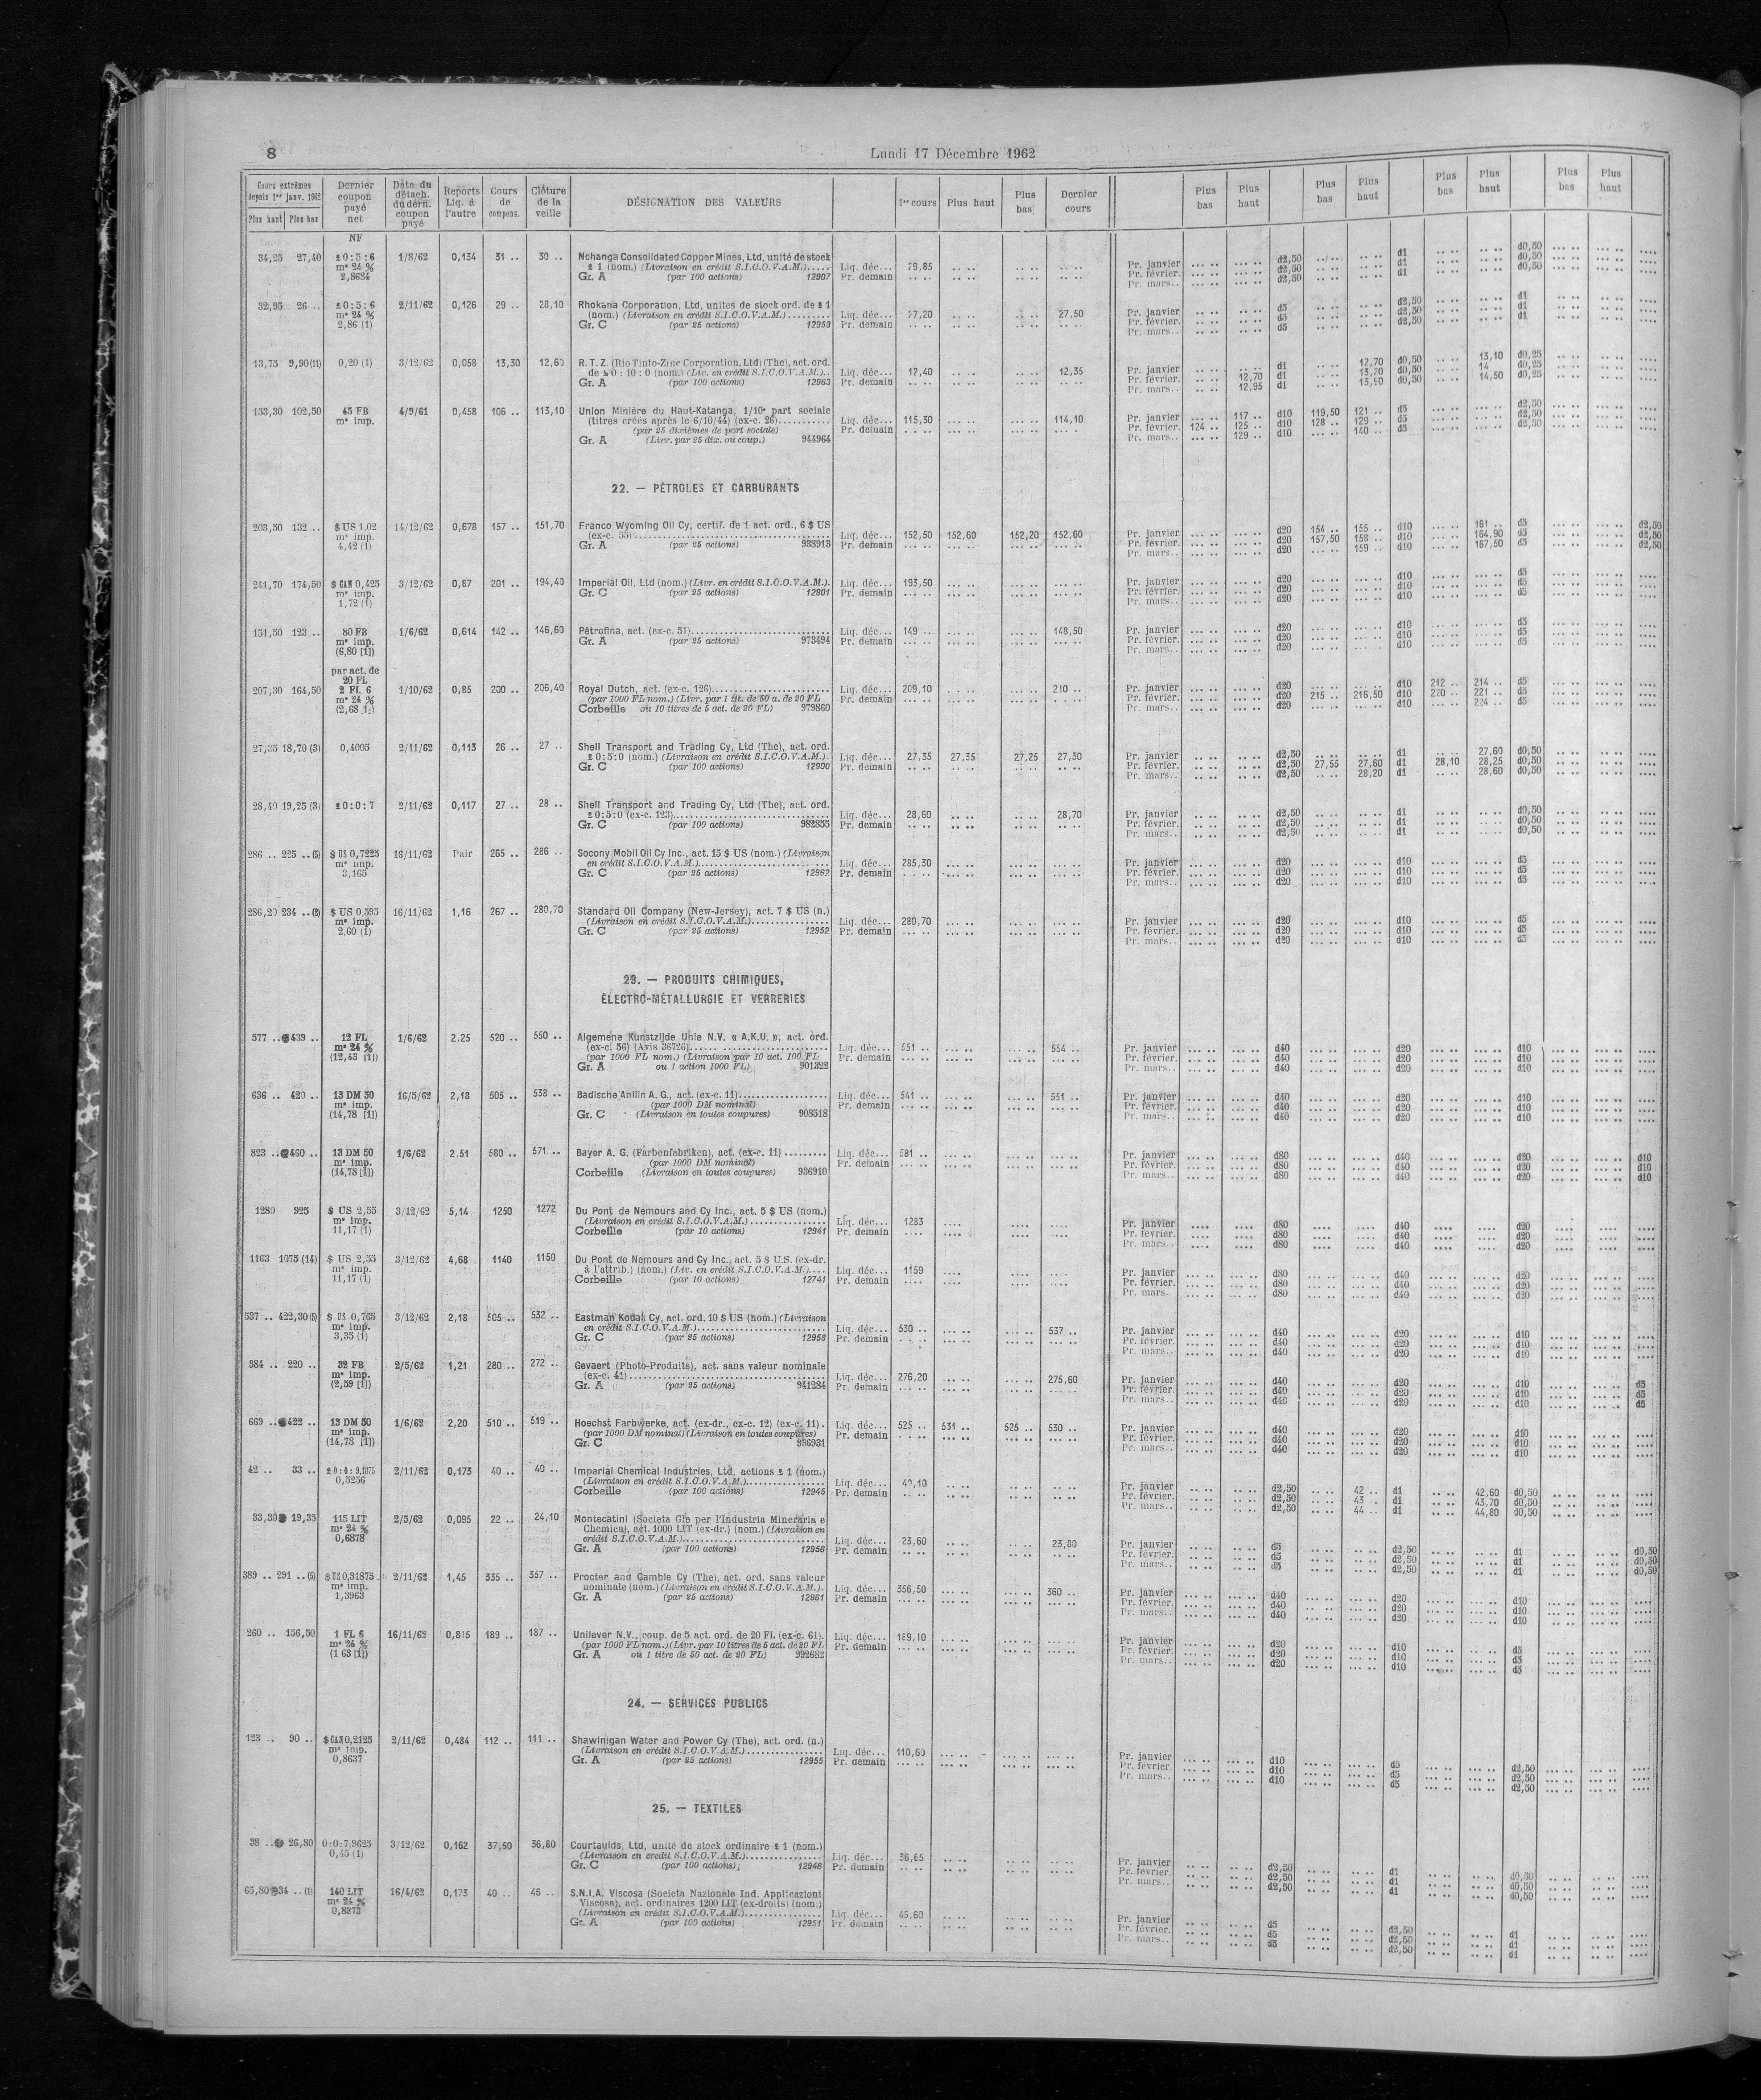 8
Lundi 17 Décembre 1962
Cours extrêmes depuis 1er janv. 1962 Plus haut Plus bas
Dernier coupon payé net
Date du détach. du dern. coupon payé
Reports Liq. à l'autre
Cours de compens.
Clôture de la veille
DÉSIGNATION DES VALEURS
1er cours Plus haut Plus bas Dernier cours
Plus bas Plus haut Plus bas Plus haut Plus bas Plus haut Plus bas Plus haut
NF
34,25 27,40 £0:5:6 1/8/62 0,134 31 .. 30 .. Nchanga Consolidated Copper Mines, Ltd, unité de stock
me 24 % £ 1 (nom.) (Livraison en crédit S.I.C.O.V.A.M.)..... Liq. déc... 29,85
2,8634 Gr. A (par 100 actions) 12907 Pr. demain
Pr. janvier d2,50 d1 d0,50
Pr. février. d2,50 d1 d0,50
Pr. mars.. d2,50 d1 d0,50
32,95 26 .. £0:5:6 2/11/62 0,126 29 .. 28,10 Rhokana Corporation, Ltd, unités de stock ord. de £ 1
me 24 % (nom.) (Livraison en crédit S.I.C.O.V.A.M.)......... Liq. déc... 27,20 27,50
2,86 (1) Gr. C (par 25 actions) 12953 Pr. demain
Pr. janvier d5 d2,50 d1
Pr. février. d5 d2,50 d1
Pr. mars.. d5 d2,50 d1
13,75 9,90(11) 0,20 (1) 3/12/62 0,058 13,30 12,60 R.T.Z. (Rio Tinto-Zinc Corporation, Ltd) (The), act. ord.
de £ 0 : 10 : 0 (nom.) (Liv. en crédit S.I.C.O.V.A.M.).. Liq. déc... 12,40 12,35
Gr. A (par 100 actions) 12963 Pr. demain
Pr. janvier d1 12,70 d0,50 13,10 d0,25
Pr. février. 12,70 d1 13,20 d0,50 14 d0,25
Pr. mars.. 12,95 d1 d0,50 14,50 d0,25
153,30 102,50 45 FB 4/9/61 0,458 106 .. 113,10 Union Minière du Haut-Katanga, 1/10e part sociale
me imp. (titres créés après le 6/10/44) (ex-c. 26)........... Liq. déc... 115,30 114,10
(par 25 dixièmes de part sociale) Pr. demain
Gr. A (Livr. par 25 dix. ou coup.) 944964
Pr. janvier 117 .. d10 119,50 121 .. d5 d2,50
Pr. février. 124 .. 125 .. d10 128 .. 129 .. d5 d2,50
Pr. mars.. 129 .. d10 140 .. d5 d2,50
22. — PÉTROLES ET CARBURANTS
203,50 132 .. $ US 1,02 14/12/62 0,678 157 .. 151,70 Franco Wyoming Oil Cy, certif. de 1 act. ord., 6 $ US
me imp. (ex-c. 55)............ Liq. déc... 152,50 152,60 152,20 152,60
4,42 (1) Gr. A (par 25 actions) 938913 Pr. demain
Pr. janvier d20 154 .. 155 .. d10 161 .. d5 d2,50
Pr. février. d20 157,50 158 .. d10 164,90 d5 d2,50
Pr. mars.. d20 159 .. d10 167,50 d5 d2,50
241,70 174,50 $ CAN 0,425 3/12/62 0,87 201 .. 194,40 Imperial Oil, Ltd (nom.) (Livr. en crédit S.I.C.O.V.A.M.). Liq. déc... 193,50
me imp. Gr. C (par 25 actions) 12901 Pr. demain
1,72 (1)
Pr. janvier d20 d10 d5
Pr. février. d20 d10 d5
Pr. mars.. d20 d10 d5
151,50 123 .. 80 FB 1/6/62 0,614 142 .. 146,60 Pétrofina, act. (ex-c. 51)............ Liq. déc... 149 .. 148,50
me imp. Gr. A (par 25 actions) 973494 Pr. demain
(6,80 [1])
Pr. janvier d20 d10 d5
Pr. février. d20 d10 d5
Pr. mars.. d20 d10 d5
par act. de
20 FL
207,30 164,50 2 FL 6 1/10/62 0,85 200 .. 206,40 Royal Dutch, act. (ex-c. 126)............ Liq. déc... 209,10 210 ..
me 24 % (par 1000 FL nom.) (Livr. par 1 tit. de 50 a. de 20 FL Pr. demain
(2,68 Corbeille ou 10 titres de 5 act. de 20 FL) 979860
Pr. janvier d20 d10 212 .. 214 .. d5
Pr. février. d20 215 .. 216,50 d10 220 .. 221 .. d5
Pr. mars.. d20 d10 224 .. d5
27,35 18,70 (3) 0,4005 2/11/62 0,113 26 .. 27 .. Shell Transport and Trading Cy, Ltd (The), act. ord.
£0:5:0 (nom.) (Livraison en crédit S.I.C.O.V.A.M.). Liq. déc... 27,35 27,35 27,25 27,30
Gr. C (par 100 actions) 12900 Pr. demain
Pr. janvier d2,50 d1 27,60 d0,50
Pr. février. d2,50 27,55 27,60 d1 28,10 28,25 d0,50
Pr. mars.. d2,50 28,20 d1 28,60 d0,50
28,40 19,25 (3) £0:0:7 2/11/62 0,117 27 .. 28 .. Shell Transport and Trading Cy, Ltd (The), act. ord.
£0:5:0 (ex-c. 123)............ Liq. déc... 28,60 28,70
Gr. C (par 100 actions) 982855 Pr. demain
Pr. janvier d2,50 d1 d0,50
Pr. février. d2,50 d1 d0,50
Pr. mars.. d2,50 d1 d0,50
286 .. 225 ..(5) $ US 0,7225 16/11/62 Pair 265 .. 286 .. Socony Mobil Oil Cy Inc., act. 15 $ US (nom.) (Livraison
me imp. en crédit S.I.C.O.V.A.M.)............ Liq. déc... 285,30
3,165 Gr. C (par 25 actions) 12962 Pr. demain
Pr. janvier d20 d10 d5
Pr. février. d20 d10 d5
Pr. mars.. d20 d10 d5
286,20 234 ..(2) $ US 0,595 16/11/62 1,16 267 .. 280,70 Standard Oil Company (New-Jersey), act. 7 $ US (n.)
me imp. (Livraison en crédit S.I.C.O.V.A.M.)............ Liq. déc... 280,70
2,60 (1) Gr. C (par 25 actions) 12952 Pr. demain
Pr. janvier d20 d10 d5
Pr. février. d20 d10 d5
Pr. mars.. d20 d10 d5
23. — PRODUITS CHIMIQUES,
ÉLECTRO-MÉTALLURGIE ET VERRERIES
577 .. 439 .. 12 FL 1/6/62 2.25 520 .. 550 .. Algemene Kunstzijde Unie N.V. « A.K.U. », act. ord.
me 24 % (ex-c. 56) (Avis 36726)............ Liq. déc... 551 .. 554 ..
(12,45 [1]) (par 1000 FL nom.) (Livraison par 10 act. 100 FL Pr. demain
Gr. A ou 1 action 1000 FL) 901322
Pr. janvier d40 d20 d10
Pr. février. d40 d20 d10
Pr. mars.. d40 d20 d10
636 .. 420 .. 13 DM 50 16/5/62 2,18 505 .. 538 .. Badische Anilin A. G., act. (ex-c. 11)............ Liq. déc... 541 .. 551 ..
me imp. (par 1000 DM nominal) Pr. demain
(14,78 [1]) Gr. C (Livraison en toutes coupures) 908518
Pr. janvier d40 d20 d10
Pr. février. d40 d20 d10
Pr. mars.. d40 d20 d10
823 .. 460 .. 13 DM 50 1/6/62 2.51 580 .. 571 .. Bayer A. G. (Farbenfabriken), act. (ex-c. 11)......... Liq. déc... 581 ..
me imp. (par 1000 DM nominal) Pr. demain
(14,78 [1]) Corbeille (Livraison en toutes coupures) 936910
Pr. janvier d80 d40 d20 d10
Pr. février. d80 d40 d20 d10
Pr. mars.. d80 d40 d20 d10
1280 925 $ US 2,55 3/12/62 5,14 1250 1272 Du Pont de Nemours and Cy Inc., act. 5 $ US (nom.)
me imp. (Livraison en crédit S.I.C.O.V.A.M.)............ Liq. déc... 1283
11,17 (1) Corbeille (par 10 actions) 12941 Pr. demain
Pr. janvier d80 d40 d20
Pr. février. d80 d40 d20
Pr. mars.. d80 d40 d20
1163 1075 (14) $ US 2,55 3/12/62 4,68 1140 1150 Du Pont de Nemours and Cy Inc., act. 5 $ U.S. (ex-dr.
me imp. à l'attrib.) (nom.) (Liv. en crédit S.I.C.O.V.A.M.).... Liq. déc... 1159
11,17 (1) Corbeille (par 10 actions) 12741 Pr. demain
Pr. janvier d80 d40 d20
Pr. février. d80 d40 d20
Pr. mars. d80 d40 d20
537 .. 422,30(5) $ US 0,765 3/12/62 2,18 505 .. 532 .. Eastman Kodak Cy, act. ord. 10 $ US (nom.) (Livraison
me imp. en crédit S.I.C.O.V.A.M.)............ Liq. déc... 530 .. 537 ..
3,35 (1) Gr. C (par 25 actions) 12958 Pr. demain
Pr. janvier d40 d20 d10
Pr. février. d40 d20 d10
Pr. mars.. d40 d20 d10
384 .. 220 .. 32 FB 2/5/62 1,21 280 .. 272 .. Gevaert (Photo-Produits), act. sans valeur nominale
me imp. (ex-c. 41)............ Liq. déc... 276,20 275,60
(2,59 [1]) Gr. A (par 25 actions) 941284 Pr. demain
Pr. janvier d40 d20 d10 d5
Pr. février. d40 d20 d10 d5
Pr. mars.. d40 d20 d10 d5
669 .. 422 .. 13 DM 50 1/6/62 2,20 510 .. 519 .. Hoechst Farbwerke, act. (ex-dr., ex-c. 12) (ex-c. 11). Liq. déc... 525 .. 531 .. 525 .. 530 ..
me imp. (par 1000 DM nominal) (Livraison en toutes coupures) Pr. demain
(14,78 [1]) Gr. C 936931
Pr. janvier d40 d20 d10
Pr. février. d40 d20 d10
Pr. mars.. d40 d20 d10
42 .. 33 .. £0:0:9,1875 2/11/62 0,173 40 .. 40 .. Imperial Chemical Industries, Ltd, actions £ 1 (nom.)
0,5256 (Livraison en crédit S.I.C.O.V.A.M.)............ Liq. déc... 40,10
Corbeille (par 100 actions) 12945 Pr. demain
Pr. janvier d2,50 42 .. d1 42,60 d0,50
Pr. février. d2,50 43 .. d1 43,70 d0,50
Pr. mars.. d2,50 44 .. d1 44,80 d0,50
33,30 19,35 115 LIT 2/5/62 0,095 22 .. 24,10 Montecatini (Societa Gle per l'Industria Mineraria e
me 24 % Chemica), act. 1000 LIT (ex-dr.) (nom.) (Livraison en
0,6878 crédit S.I.C.O.V.A.M.)............ Liq. déc... 23,60 23,80
Gr. A (par 100 actions) 12956 Pr. demain
Pr. janvier d5 d2,50 d1 d0,50
Pr. février. d5 d2,50 d1 d0,50
Pr. mars.. d5 d2,50 d1 d0,50
389 .. 291 ..(5) $ US 0,31875 2/11/62 1,45 335 .. 357 .. Procter and Gamble Cy (The), act. ord. sans valeur
me imp. nominale (nom.) (Livraison en crédit S.I.C.O.V.A.M.). Liq. déc... 356,50 360 ..
1,3963 Gr. A (par 25 actions) 12961 Pr. demain
Pr. janvier d40 d20 d10
Pr. février. d40 d20 d10
Pr. mars.. d40 d20 d10
260 .. 156,50 1 FL 6 16/11/62 0,815 189 .. 187 .. Unilever N.V., coup. de 5 act. ord. de 20 FL (ex-c. 61). Liq. déc... 189,10
me 24 % (par 1000 FL nom.) (Livr. par 10 titres de 5 act. de 20 FL Pr. demain
(1 63 [1]) Gr. A ou 1 titre de 50 act. de 20 FL) 992682
Pr. janvier d20 d10 d5
Pr. février. d20 d10 d5
Pr. mars.. d20 d10 d5
24. — SERVICES PUBLICS
123 .. 90 .. $ CAN 0,2125 2/11/62 0,484 112 .. 111 .. Shawinigan Water and Power Cy (The), act. ord. (n.)
me imp. (Livraison en crédit S.I.C.O.V.A.M.)............ Liq. déc... 110,60
0,8637 Gr. A (par 25 actions) 12955 Pr. demain
Pr. janvier d10 d5 d2,50
Pr. février. d10 d5 d2,50
Pr. mars.. d10 d5 d2,50
25. — TEXTILES
38 .. 26,80 0:0:7,9625 3/12/62 0,162 37,50 36,80 Courtaulds, Ltd, unité de stock ordinaire £ 1 (nom.)
0,45 (1) (Livraison en crédit S.I.C.O.V.A.M.)............ Liq. déc... 36,65
Gr. C (par 100 actions) 12946 Pr. demain
Pr. janvier d2,50 d1 d0,50
Pr. février. d2,50 d1 d0,50
Pr. mars.. d2,50 d1 d0,50
65,80 34 ..(1) 140 LIT 16/4/62 0,173 40 .. 46 .. S.N.I.A. Viscosa (Societa Nazionale Ind. Applicazioni
me 24 % Viscosa), act. ordinaires 1200 LIT (ex-droits) (nom.)
0,8373 (Livraison en crédit S.I.C.O.V.A.M.)............ Liq. déc... 45,60
Gr. A (par 100 actions) 12951 Pr. demain
Pr. janvier d5 d2,50 d1
Pr. février. d5 d2,50 d1
Pr. mars.. d5 d2,50 d1